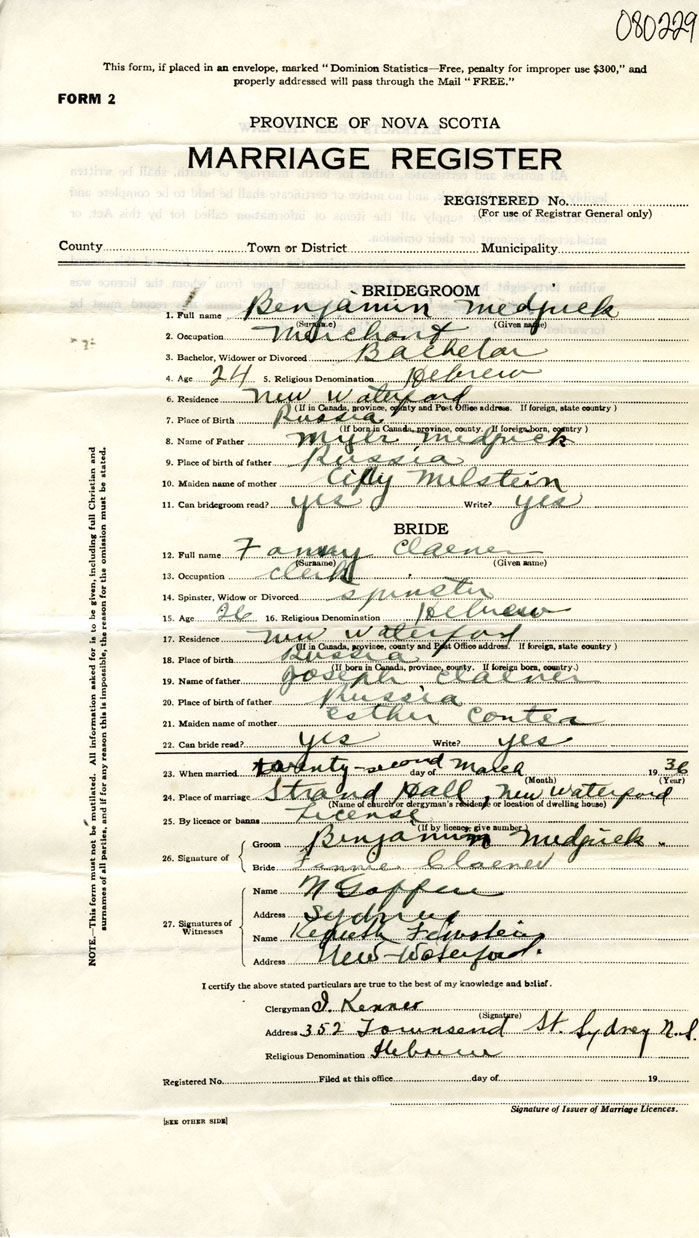 080229
This form, if placed in an envelope, marked “Dominion Statistics—Free, penalty for improper use $300,” and
properly addressed will pass through the Mail “FREE.”
FORM 2
PROVINCE OF NOVA SCOTIA
MARRIAGE REGISTER
REGISTERED No.
(For use of Registrar General only)
County Town or District Municipality
BRIDEGROOM
1. Full name Benjamin Medjuck
(Surname) (Given name)
2. Occupation Merchant
3. Bachelor, Widower or Divorced Bachelor
4. Age 24 5. Religious Denomination Hebrew
6. Residence New Waterford
(If in Canada, province, county and Post Office address. If foreign, state country)
7. Place of Birth Russia
(If born in Canada, province, county. If foreign born, country)
8. Name of Father Myer Medjuck
9. Place of birth of father Russia
10. Maiden name of mother Milstein
11. Can bridegroom read? yes Write? yes
BRIDE
12. Full name Fanny Claener
(Surname) (Given name)
13. Occupation clerk
14. Spinster, Widow or Divorced spinster
15. Age 26 16. Religious Denomination Hebrew
17. Residence New Waterford
(If in Canada, province, county and Post Office address. If foreign, state country)
18. Place of birth Russia
(If born in Canada, province, county. If foreign born, country.)
19. Name of father Joseph Claener
20. Place of birth of father Russia
21. Maiden name of mother Esther Conter
22. Can bride read? yes Write? yes
23. When married twenty-second day of March 1936
(Month) (Year)
24. Place of marriage Strand Hall, New Waterford
(Name of church or clergyman's residence or location of dwelling house)
25. By licence or banns License
(If by licence, give number)
26. Signature of
Groom Benjamin Medjuck.
Bride Fannie Claener
27. Signatures of Witnesses
Name N Gaffen
Address Sydney
Name Kenneth Feinstein
Address New-Waterford.
I certify the above stated particulars are true to the best of my knowledge and belief.
Clergyman I. Kenner
(Signature)
Address 352 Townsend St. Sydney N.S.
Religious Denomination Hebrew
Registered No. Filed at this office day of 19
Signature of Issuer of Marriage Licences.
[SEE OTHER SIDE]
NOTE.—This form must not be mutilated. All information asked for is to be given, including full Christian and
surnames of all parties, and if for any reason this is impossible, the reason for the omission must be stated.